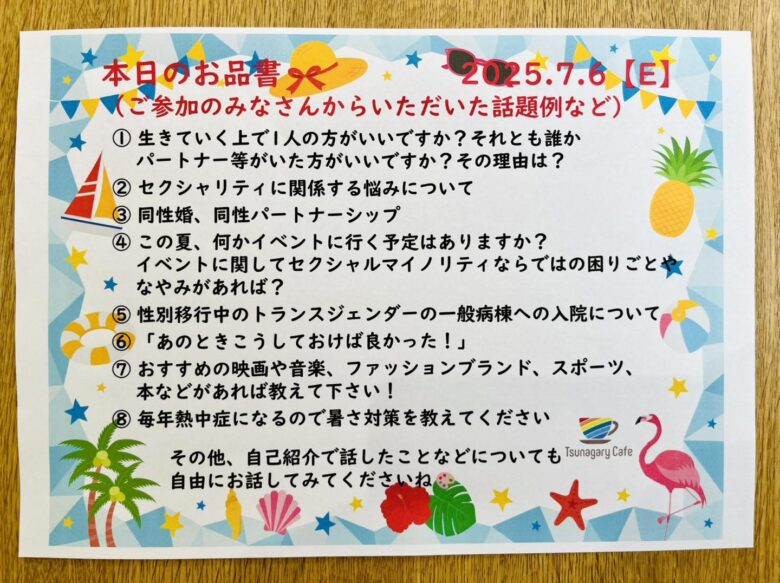 本日のお品書 2025.7.6【E】
（ご参加のみなさんからいただいた話題例など）
① 生きていく上で1人の方がいいですか？それとも誰か
パートナー等がいた方がいいですか？その理由は？
② セクシャリティに関係する悩みについて
③ 同性婚、同性パートナーシップ
④ この夏、何かイベントに行く予定はありますか？
イベントに関してセクシャルマイノリティならではの困りごとや
なやみがあれば？
⑤ 性別移行中のトランスジェンダーの一般病棟への入院について
⑥ 「あのときこうしておけば良かった！」
⑦ おすすめの映画や音楽、ファッションブランド、スポーツ、
本などがあれば教えて下さい！
⑧ 毎年熱中症になるので暑さ対策を教えてください
Tsunagary Cafe
その他、自己紹介で話したことなどについても
自由にお話してみてくださいね